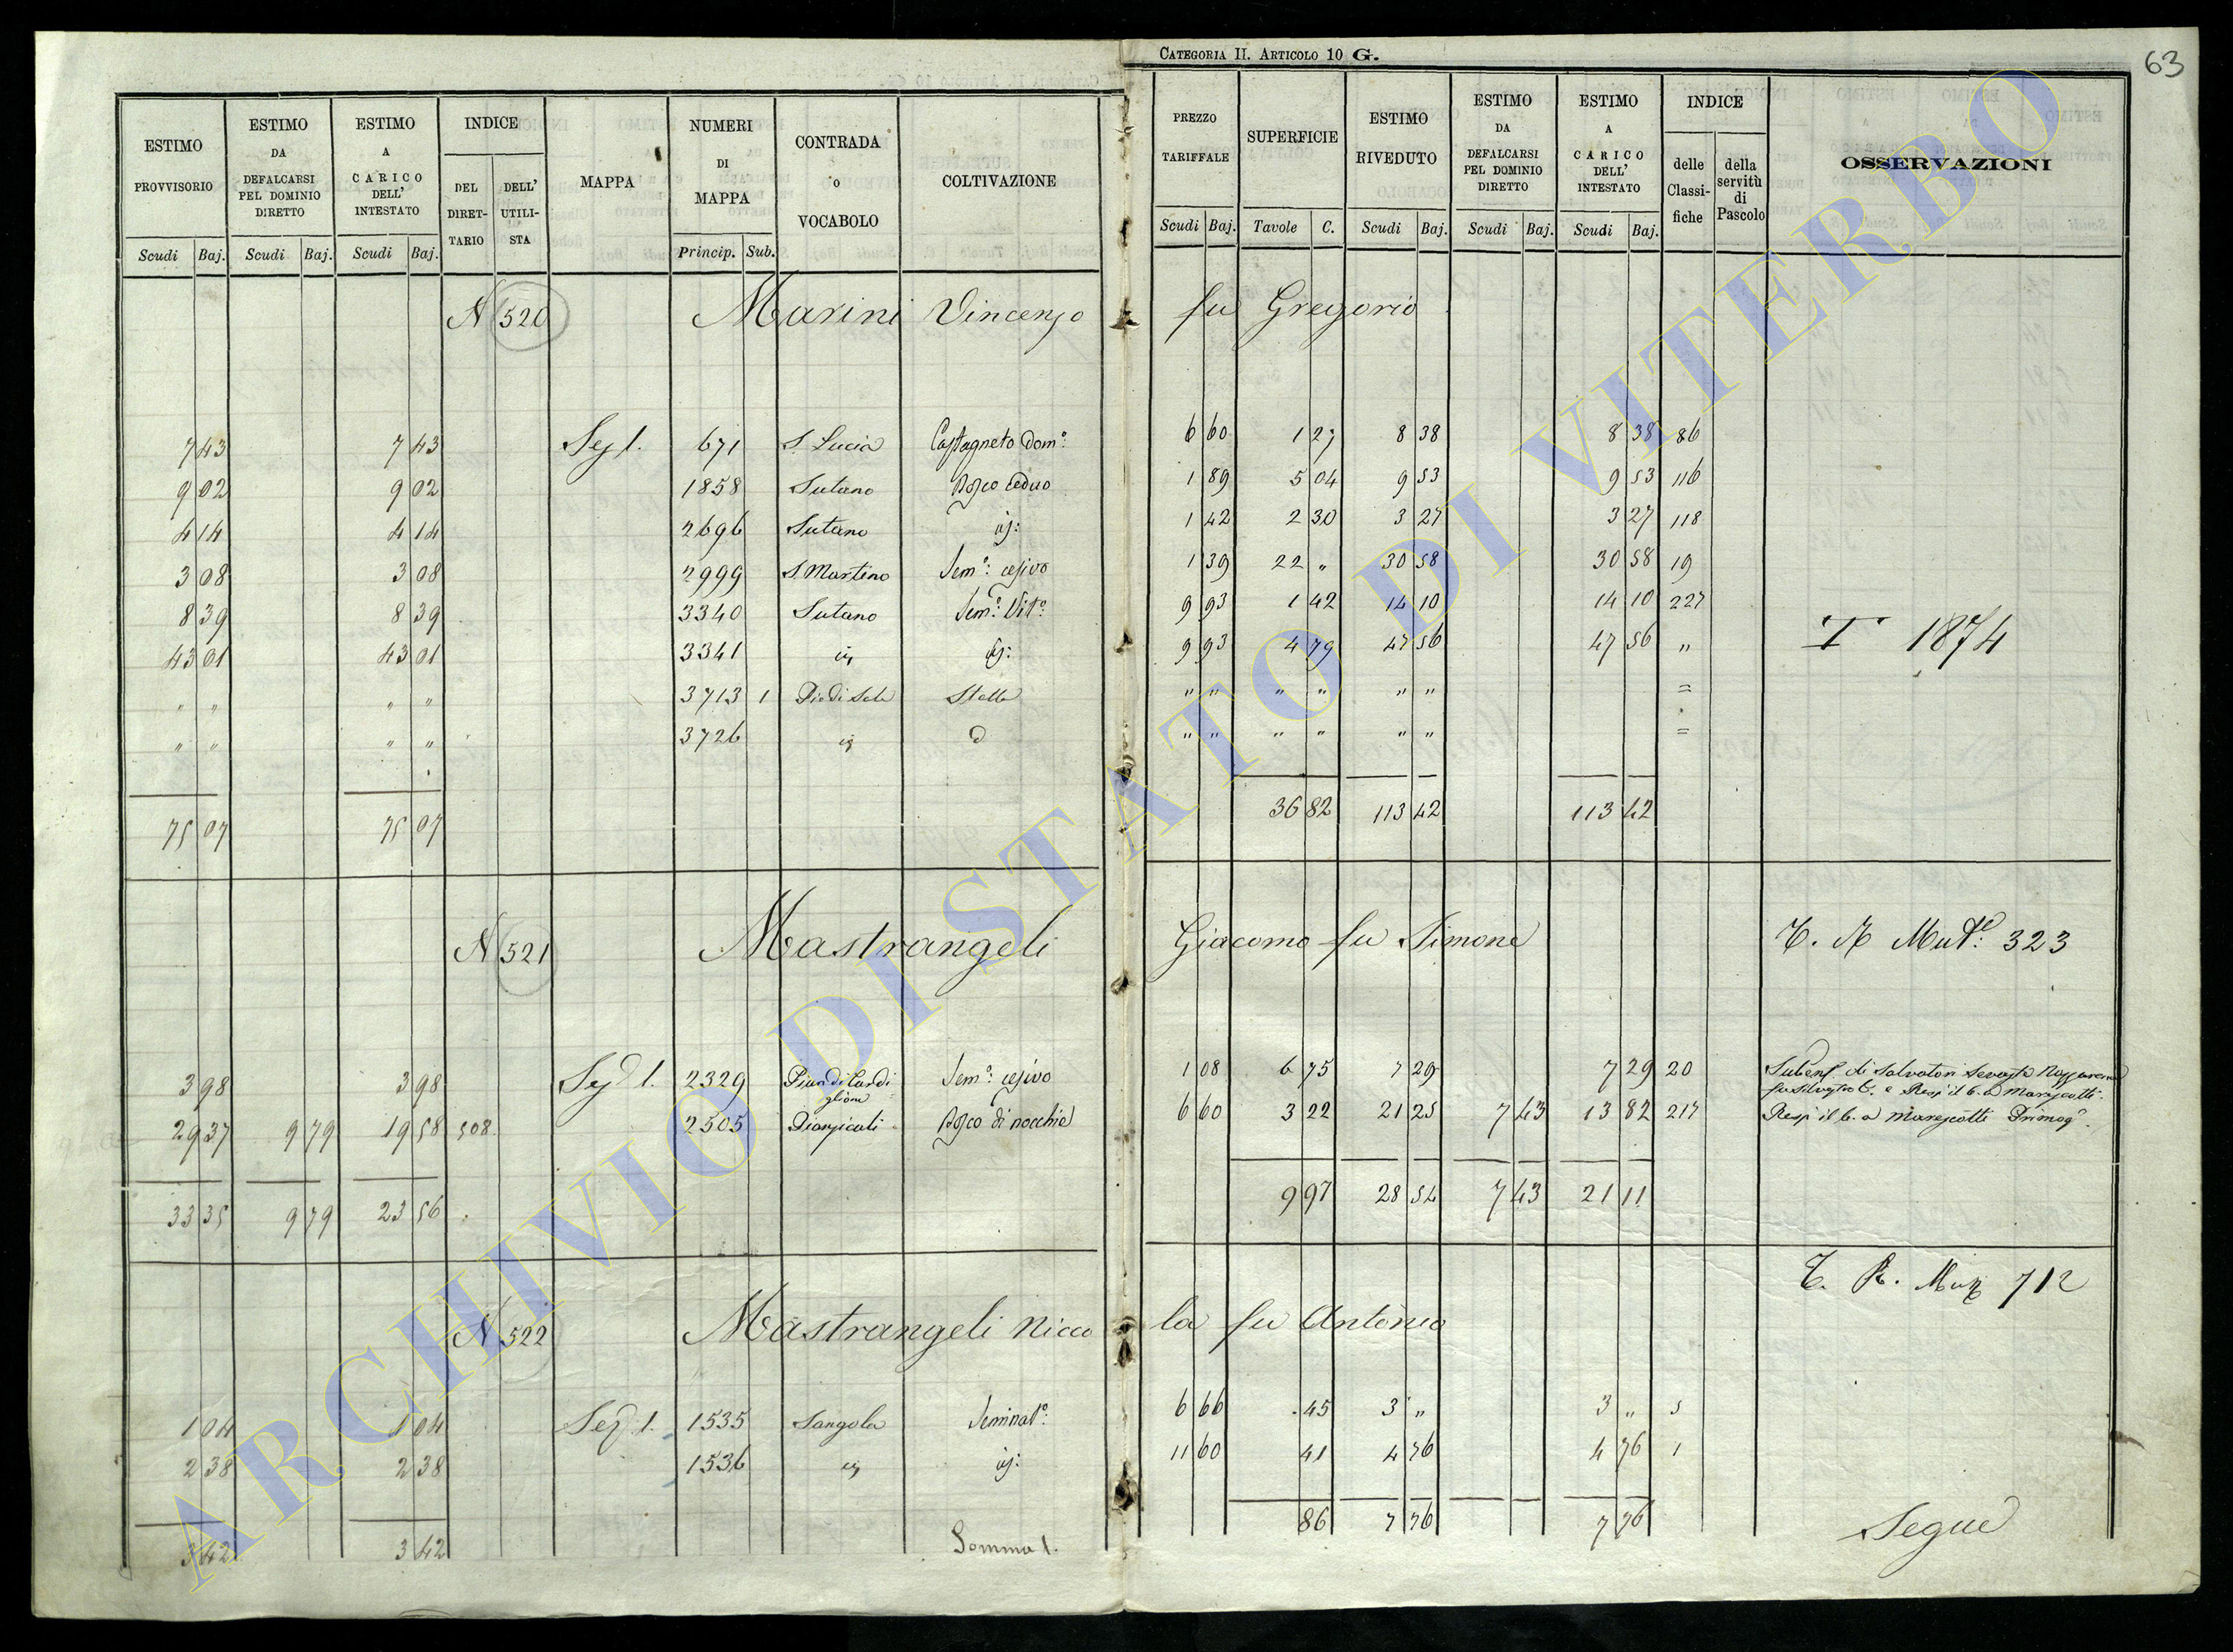 CATEGORIA II. ARTICOLO 10 G.
63
ESTIMO PROVVISORIO
ESTIMO DA DEFALCARSI PEL DOMINIO DIRETTO
ESTIMO A CARICO DELL' INTESTATO
INDICE
DEL DIRETTARIO
DELL' UTILISTA
MAPPA
NUMERI DI MAPPA
CONTRADA o VOCABOLO
COLTIVAZIONE
PREZZO TARIFFALE
SUPERFICIE
ESTIMO RIVEDUTO
ESTIMO DA DEFALCARSI PEL DOMINIO DIRETTO
ESTIMO A CARICO DELL' INTESTATO
INDICE
delle Classifiche
della servitù di Pascolo
OSSERVAZIONI
Scudi Baj. Scudi Baj. Scudi Baj. Princip. Sub. Scudi Baj. Tavole C. Scudi Baj. Scudi Baj. Scudi Baj.
N 520 Marini Vincenzo fu Gregorio
7 43 7 43 Sez 1. 671 S. Lucia Castagneto Dom: 6 60 1 27 8 38 8 38 86
9 02 9 02 1858 Sutano Bosco ceduo 1 89 5 04 9 53 9 53 116
4 14 4 14 2696 Sutano 1 42 2 30 3 27 3 27 118
3 08 3 08 2999 S. Martino Sem: cesivo 1 39 22 " 30 58 30 58 19
8 39 8 39 3340 Sutano Sem: Vit: 9 93 1 42 14 10 14 10 227
43 01 43 01 3341 9 93 4 79 47 56 47 56 "
T 1874
" " " " 3713 1 Stalla " " " " " " =
" " " " 3726 " " " " " " =
75 07 75 07 36 82 113 42 113 42
N 521 Mastrangeli Giacomo fu Simone
323
3 98 3 98 1. 2329 Sem: cesivo 1 08 6 75 7 29 7 29 20
29 37 9 79 19 58 508 2505 Bosco di nocchie 6 60 3 22 21 25 7 43 13 82 217
33 35 9 79 23 56 9 97 28 54 7 43 21 11
712
N 522 Mastrangeli Niccola fu Antonio
1 04 1 04 Sez. 1. 1535 Sangola Seminat: 6 66 45 3 " 3 " 5
2 38 2 38 1536 11 60 41 4 76 4 76 1
3 42 3 42 Somma 1. 86 7 76 7 76
Segue
ARCHIVIO DI STATO DI VITERBO